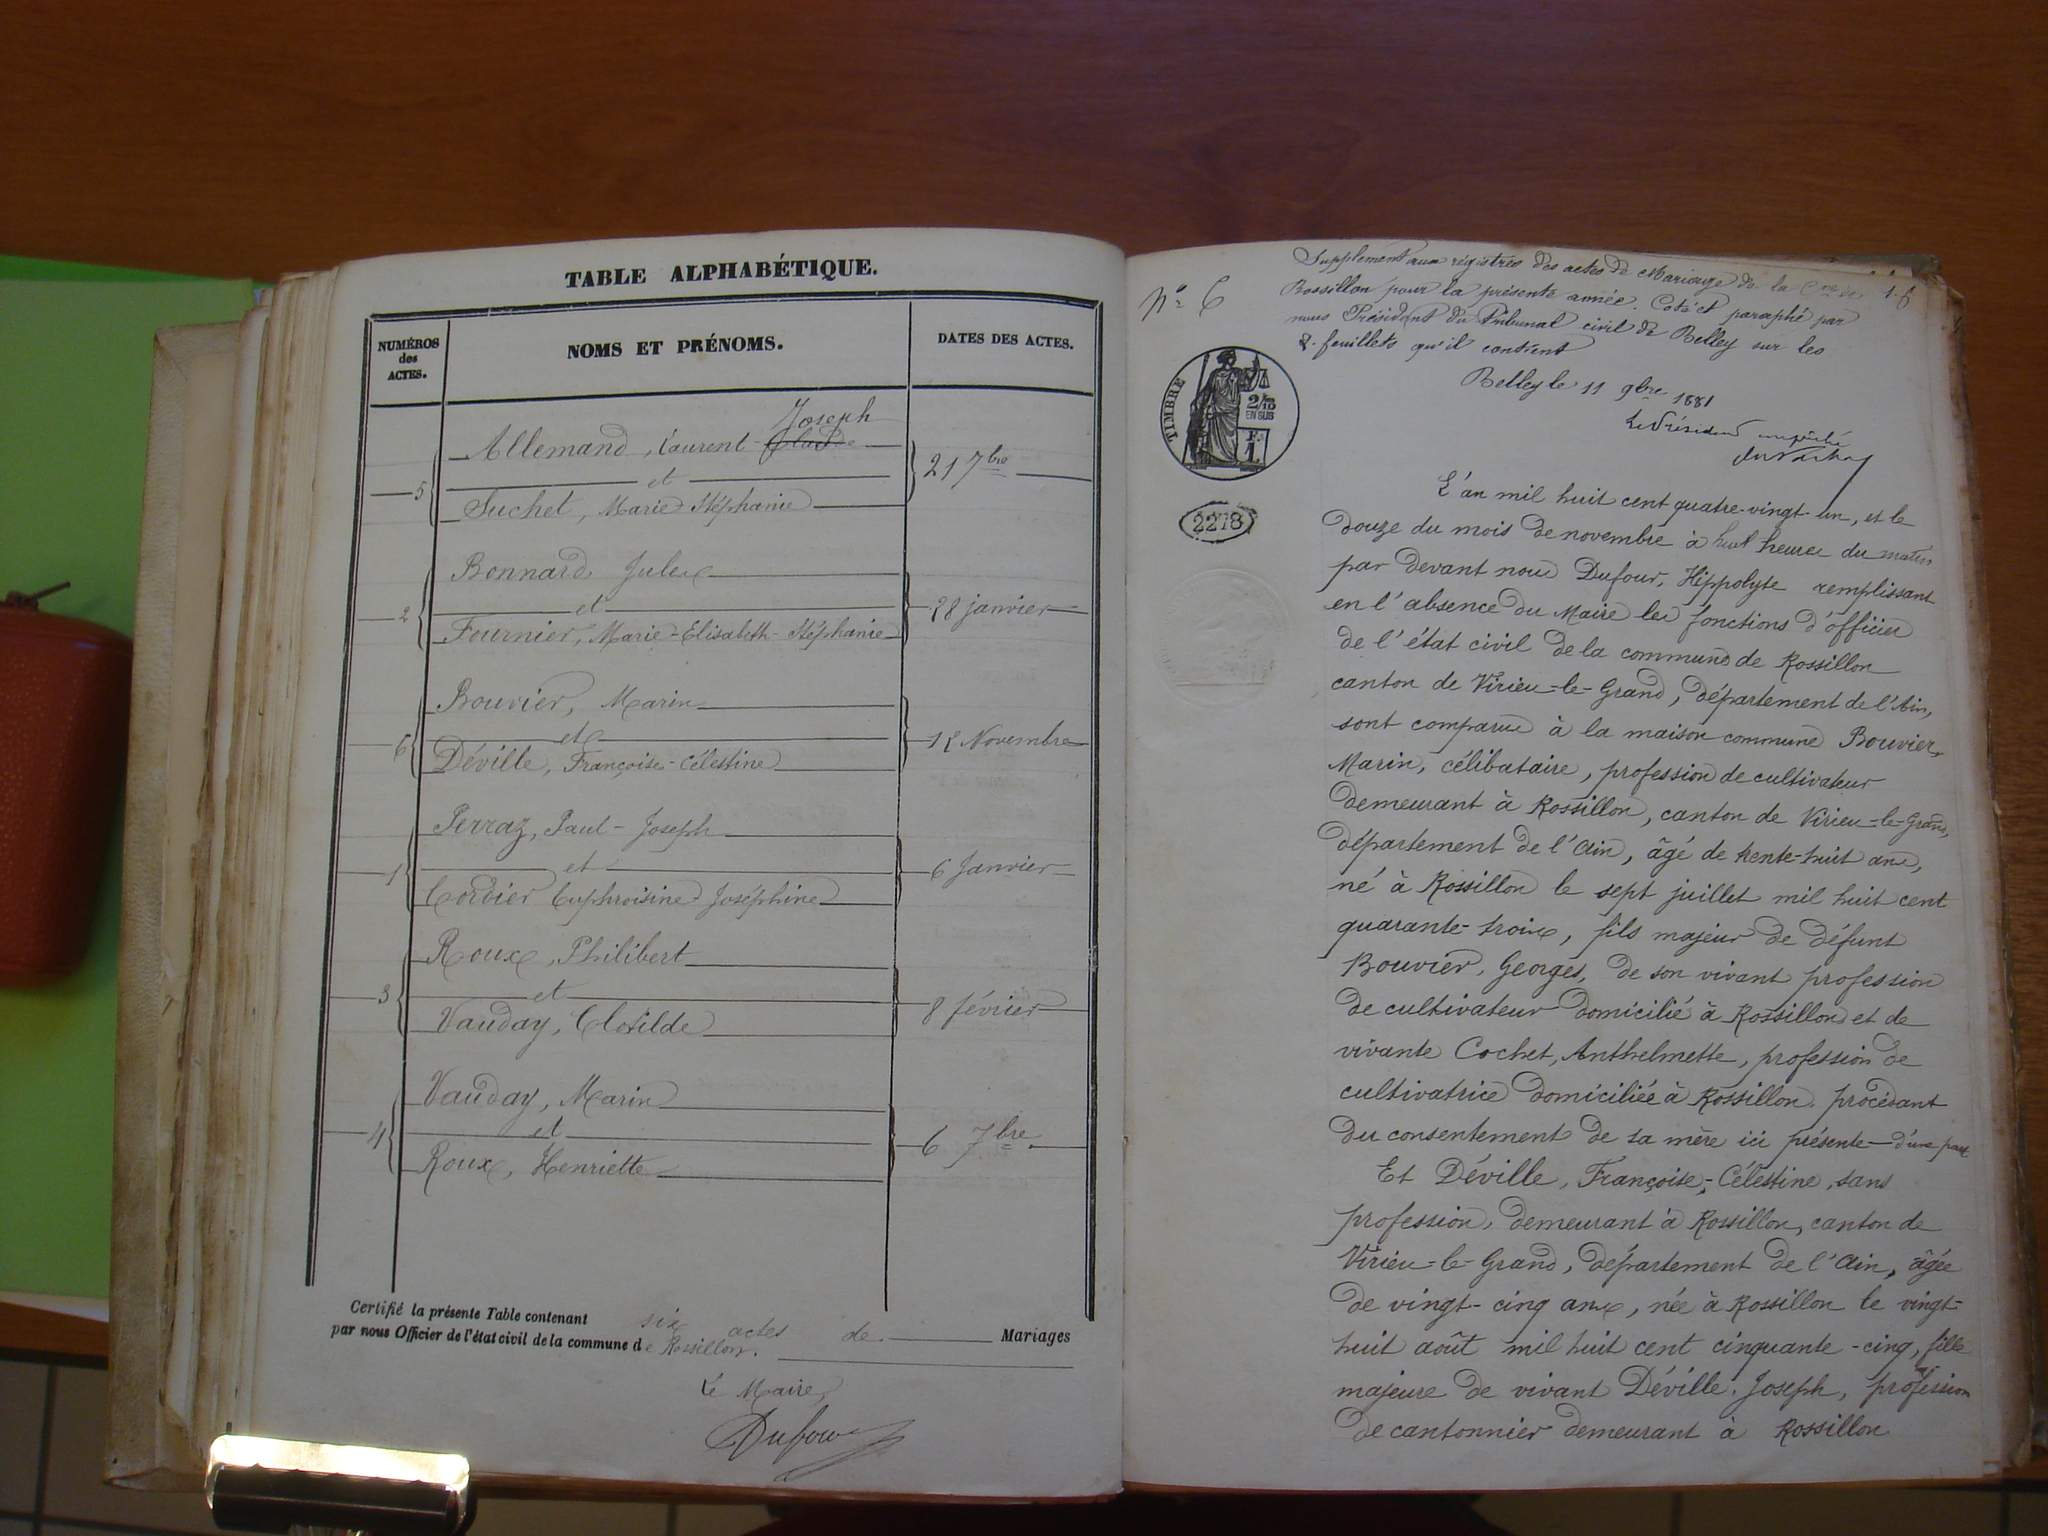 TABLE ALPHABÉTIQUE.
NUMÉROS
des
ACTES.
NOMS ET PRÉNOMS.
DATES DES ACTES.
Joseph
Allemand, Laurent Claude
5
et
21 7bre
Suchet, Marie Stéphanie
Bonnard Jules
2
et
28 janvier
Fournier, Marie-Elisabeth-Stéphanie
Bouvier, Marin
6
et
12 Novembre
Déville, Françoise-Célestine
Perraz, Paul-Joseph
1
et
6 Janvier
Cordier Euphroisine Joséphine
Roux, Philibert
3
et
8 février
Vauday, Clotilde
Vauday, Marin
4
et
6 7bre.
Roux, Henriette
Certifié la présente Table contenant six actes de Mariages
par nous Officier de l'état civil de la commune de Rossillon.
Le Maire,
Dufour
Nº 6
Supplément aux régistres des actes de Mariage de la Cne de
Rossillon pour la présente année. Coté et paraphé par
nous Président du Tribunal civil de Belley sur les
feuillets qu'il contient
Belley le 11 9bre 1881
Le Président empêché
TIMBRE
2/10
EN SUS
1
2278
L'an mil huit cent quatre-vingt-un, et le
douze du mois de novembre à huit heures du matin
par devant nous Dufour, Hippolyte remplissant
en l'absence du Maire les fonctions d'officier
de l'état civil de la commune de Rossillon
canton de Virieu-le-Grand, département de l'Ain,
sont comparus à la maison commune Bouvier,
Marin, célibataire, profession de cultivateur
demeurant à Rossillon, canton de Virieu-le-Grand,
département de l'Ain, âgé de trente-huit ans,
né à Rossillon le sept juillet mil huit cent
quarante-trois, fils majeur de défunt
Bouvier, Georges, de son vivant profession
de cultivateur domicilié à Rossillon et de
vivante Cochet, Anthelmette, profession de
cultivatrice domiciliée à Rossillon. procédant
du consentement de sa mère ici présente d'une part
Et Déville, Françoise-Célestine, sans
profession, demeurant à Rossillon, canton de
Virieu-le-Grand, département de l'Ain, âgée
de vingt-cinq ans, née à Rossillon le vingt-
huit août mil huit cent cinquante-cinq, fille
majeure de vivant Déville, Joseph, profession
de cantonnier demeurant à Rossillon